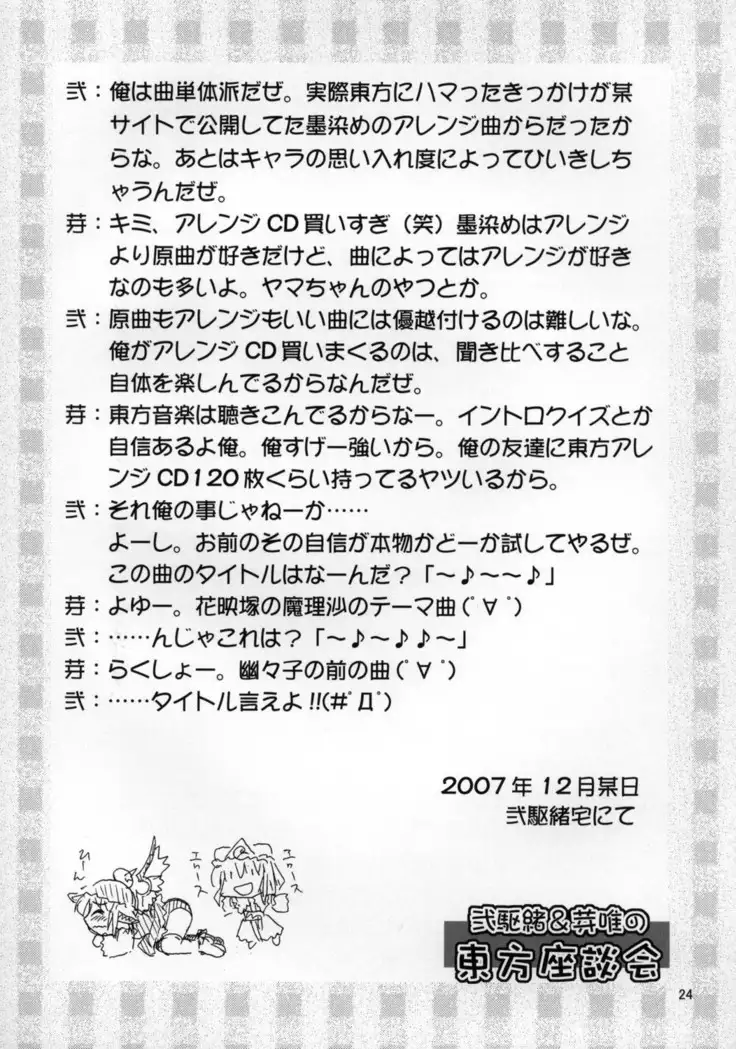 弐：俺は曲単体派だぜ。実際東方にハマったきっかけが某
サイトで公開してた墨染めのアレンジ曲からだったか
らな。あとはキャラの思い入れ度によってひいきしち
ゃうんだぜ。
芽：キミ、アレンジCD買いすぎ（笑）墨染めはアレンジ
より原曲が好きだけど、曲によってはアレンジが好き
なのも多いよ。ヤマちゃんのやつとか。
弐：原曲もアレンジもいい曲には優越付けるのは難しいな。
俺がアレンジCD買いまくるのは、聞き比べすること
自体を楽しんでるからなんだぜ。
芽：東方音楽は聴きこんでるからなー。イントロクイズとか
自信あるよ俺。俺すげー強いから。俺の友達に東方アレ
ンジCD120枚くらい持ってるヤツいるから。
弐：それ俺の事じゃねーか……
よーし。お前のその自信が本物かどーか試してやるぜ。
この曲のタイトルはなーんだ？「～♪～～♪」
芽：よゆー。花映塚の魔理沙のテーマ曲(ﾟ∀ﾟ)
弐：……んじゃこれは？「～♪～♪♪～」
芽：らくしょー。幽々子の前の曲(ﾟ∀ﾟ)
弐：……タイトル言えよ!!(#ﾟДﾟ)
2007年12月某日
弐駆緒宅にて
ひーん
エロース
エロース
弐駆緒&芽唯の
東方座談会
24